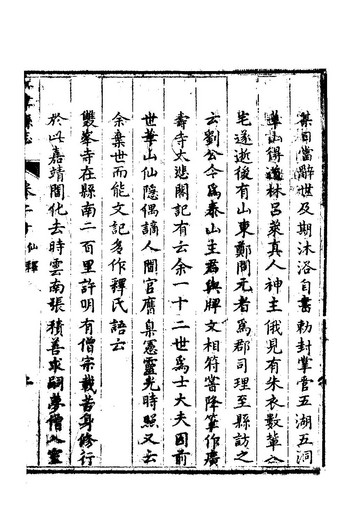 某日當辭世及期沐浴自書勅封掌管五湖五洞
華山得道林呂萊真人神主俄見有朱衣數輩
宅遂逝後有山東鄭聞元者爲郡司理至縣訪之
云劉公今爲泰山主者與牌文相符嘗降筆作廣
壽寺大悲閣記有云余一十二世爲士大夫因前
世華山仙隱偶謫人間官廌臬憲靈光時照又云
余棄世而能文記多作釋氏語云
雙峯寺在縣南二百里許明有僧宗載苦身修行
於此嘉靖間化去時雲南張積善求嗣夢僧
縣志
卷二十
仙釋